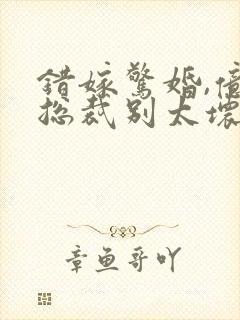 错嫁惊婚,亿
总裁别太坏
章鱼哥吖